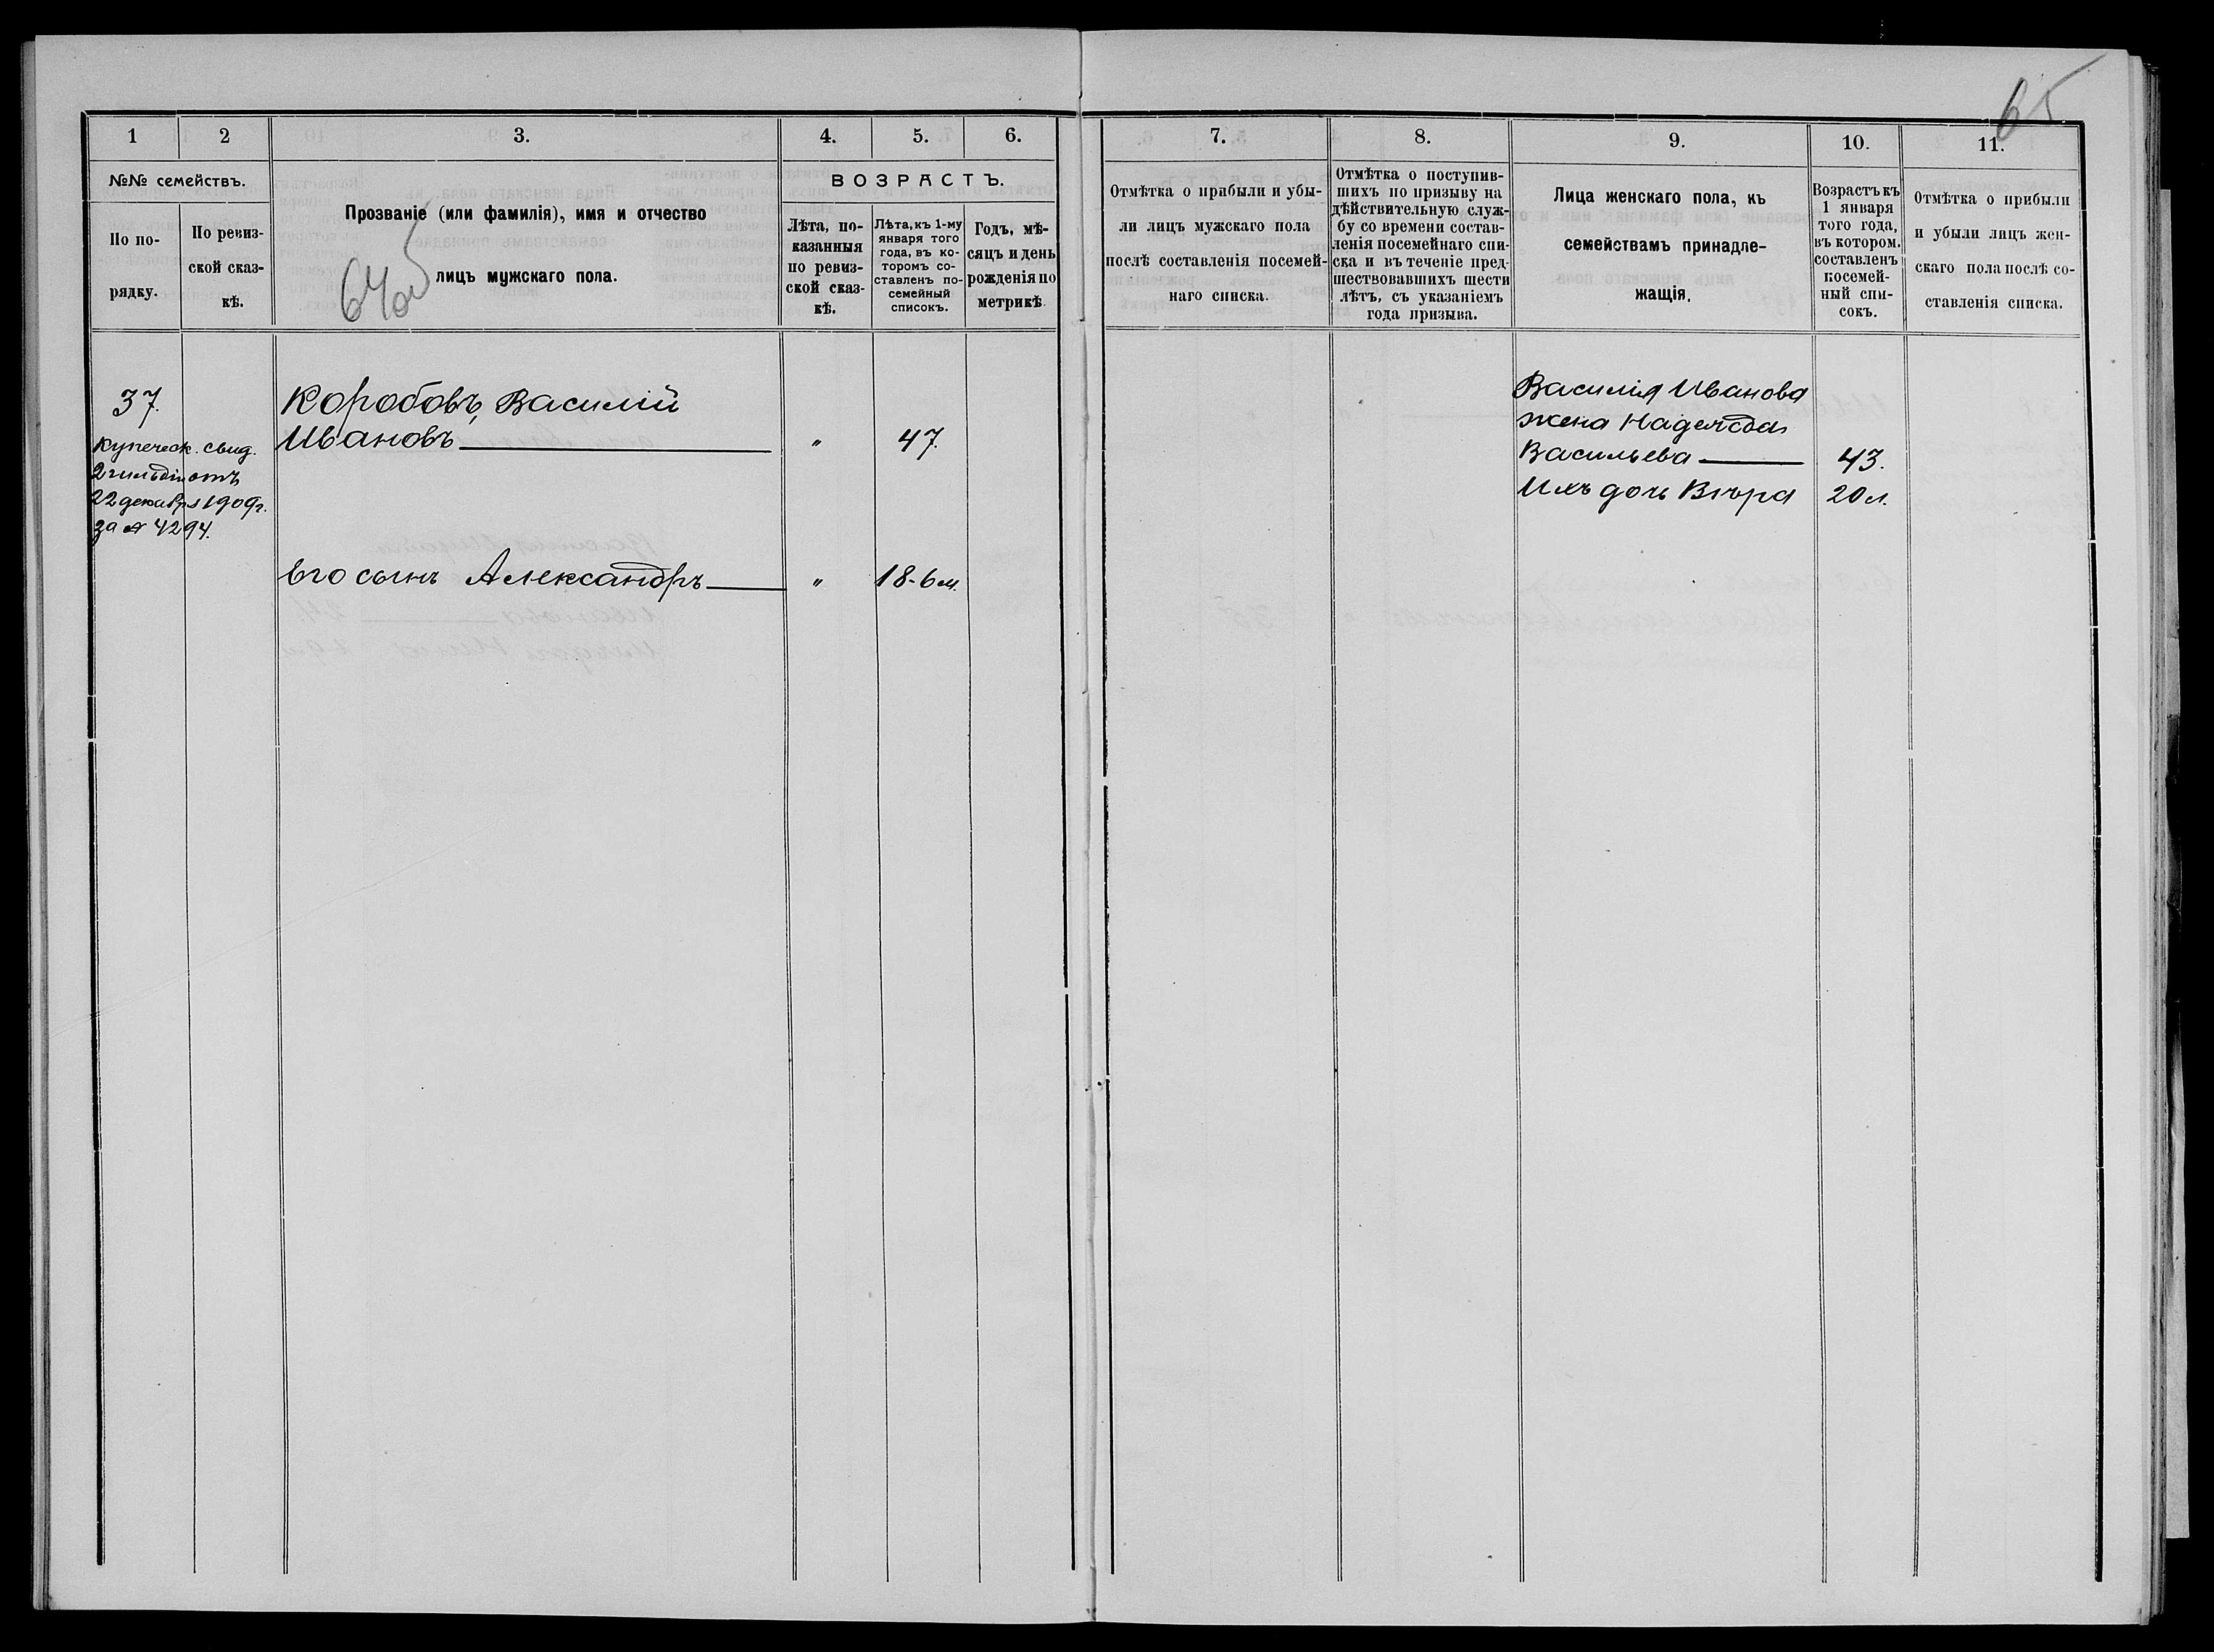 65
1
2
3.
4.
5.
6.
№№ семействъ.
По по-
рядку.
По ревиз-
ской сказ-
кѣ.
Прозваніе (или фамилія), имя и отчество
лицъ мужскаго пола.
ВОЗРАСТЪ.
Лѣта, по-
казанныя
по ревиз-
ской сказ-
кѣ.
Лѣта, къ 1-му
января того
года, въ ко-
торомъ со-
ставленъ по-
семейный
списокъ.
Годъ, мѣ-
сяцъ и день
рожденія по
метрикѣ.
37.
купеческ. свид.
2 гильдіи отъ
22 декабря 1909г.
за № 4294.
Коробовъ, Василій
Ивановъ
"
47.
Его сынъ Александръ
"
18-6 м.
7.
8.
9.
10.
11.
Отмѣтка о прибыли и убы-
ли лицъ мужскаго пола
послѣ составленія посемей-
наго списка.
Отмѣтка о поступив-
шихъ по призыву на
дѣйствительную служ-
бу со времени состав-
ленія посемейнаго спи-
ска и въ теченіе пред-
шествовавшихъ шести
лѣтъ, съ указаніемъ
года призыва.
Лица женскаго пола, къ
семействамъ принадле-
жащія.
Возрастъ къ
1 января
того года,
въ котором.
составленъ
посемей-
ный спи-
сокъ.
Отмѣтка о прибыли
и убыли лицъ жен-
скаго пола послѣ со-
ставленія списка.
Василія Иванова
жена Надежда
Васильева
43.
Ихъ дочь Вѣра
20 л.